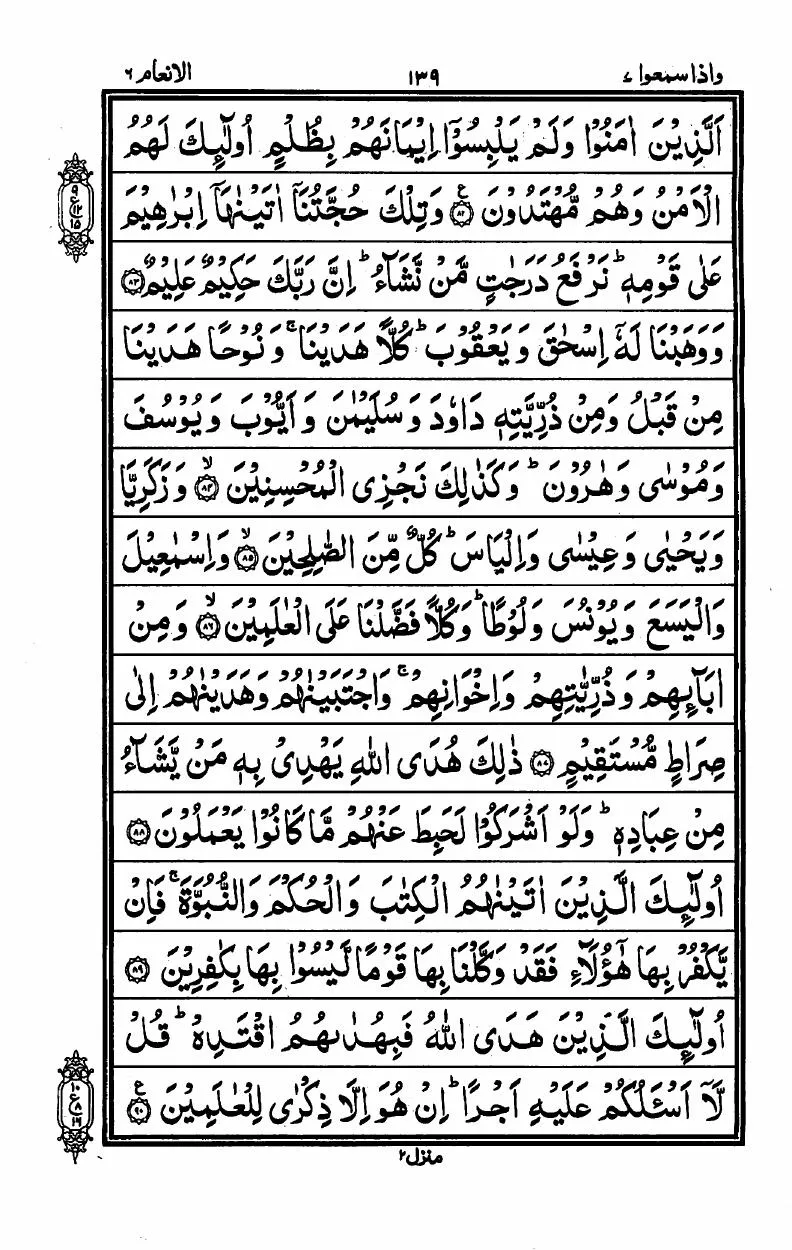 واذا سمعوا ٧
١٣٩
الانعام ٦
اَلَّذِيْنَ اٰمَنُوْا وَلَمْ يَلْبِسُوْۤا اِيْمَانَهُمْ بِظُلْمٍ اُولٰٓئِكَ لَهُمُ
الْاَمْنُ وَهُمْ مُّهْتَدُوْنَ ﴿۸۲﴾ ع وَتِلْكَ حُجَّتُنَاۤ اٰتَيْنٰهَاۤ اِبْرٰهِيْمَ
عَلٰى قَوْمِهٖ ؕ نَرْفَعُ دَرَجٰتٍ مَّنْ نَّشَآءُ ؕ اِنَّ رَبَّكَ حَكِيْمٌ عَلِيْمٌ ﴿۸۳﴾
وَوَهَبْنَا لَهٗۤ اِسْحٰقَ وَيَعْقُوْبَ ؕ كُلًّا هَدَيْنَا ۚ وَنُوْحًا هَدَيْنَا
مِنْ قَبْلُ وَمِنْ ذُرِّيَّتِهٖ دَاوٗدَ وَسُلَيْمٰنَ وَاَيُّوْبَ وَيُوْسُفَ
وَمُوْسٰى وَهٰرُوْنَ ؕ وَكَذٰلِكَ نَجْزِى الْمُحْسِنِيْنَ ۙ﴿۸۴﴾ وَزَكَرِيَّا
وَيَحْيٰى وَعِيْسٰى وَاِلْيَاسَ ؕ كُلٌّ مِّنَ الصّٰلِحِيْنَ ۙ﴿۸۵﴾ وَاِسْمٰعِيْلَ
وَالْيَسَعَ وَيُوْنُسَ وَلُوْطًا ؕ وَكُلًّا فَضَّلْنَا عَلَى الْعٰلَمِيْنَ ۙ﴿۸۶﴾ وَمِنْ
اٰبَآئِهِمْ وَذُرِّيّٰتِهِمْ وَاِخْوَانِهِمْ ۚ وَاجْتَبَيْنٰهُمْ وَهَدَيْنٰهُمْ اِلٰى
صِرَاطٍ مُّسْتَقِيْمٍ ﴿۸۷﴾ ذٰلِكَ هُدَى اللّٰهِ يَهْدِىْ بِهٖ مَنْ يَّشَآءُ
مِنْ عِبَادِهٖ ؕ وَلَوْ اَشْرَكُوْا لَحَبِطَ عَنْهُمْ مَّا كَانُوْا يَعْمَلُوْنَ ﴿۸۸﴾
اُولٰٓئِكَ الَّذِيْنَ اٰتَيْنٰهُمُ الْكِتٰبَ وَالْحُكْمَ وَالنُّبُوَّةَ ۚ فَاِنْ
يَّكْفُرْ بِهَا هٰۤؤُلَآءِ فَقَدْ وَكَّلْنَا بِهَا قَوْمًا لَّيْسُوْا بِهَا بِكٰفِرِيْنَ ﴿۸۹﴾
اُولٰٓئِكَ الَّذِيْنَ هَدَى اللّٰهُ فَبِهُدٰىهُمُ اقْتَدِهْ ؕ قُلْ
لَّاۤ اَسْئَلُكُمْ عَلَيْهِ اَجْرًا ؕ اِنْ هُوَ اِلَّا ذِكْرٰى لِلْعٰلَمِيْنَ ﴿۹۰﴾ ع
منزل ٢
٩
ع ١٢
١٥
١٠
ع ٨
١٦